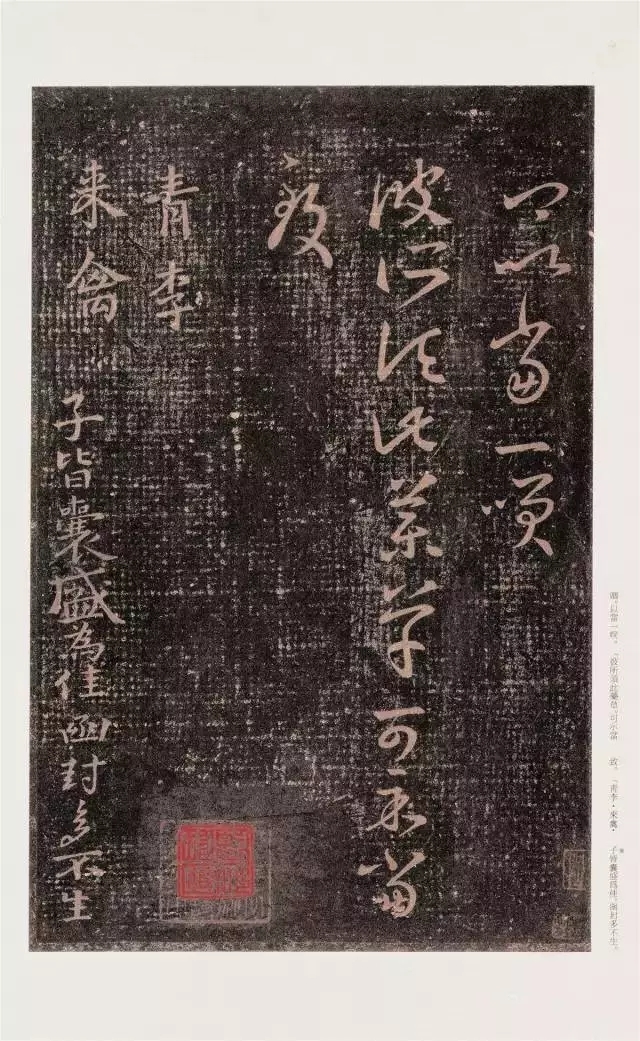 以當一唉
彼所須此藥草可示當
致
青李
来禽
子皆囊盛為佳函封多不生
嗰。以當一唉。「彼所須此藥草。可示當　致。「青李・來禽・　子皆囊盛爲佳。函封多不生。